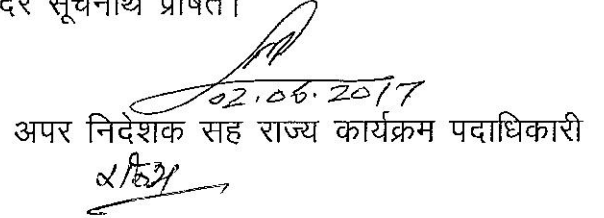 सूचनार्थ प्रेषित।
02.06.2017
अपर निदेशक सह राज्य कार्यक्रम पदाधिकारी